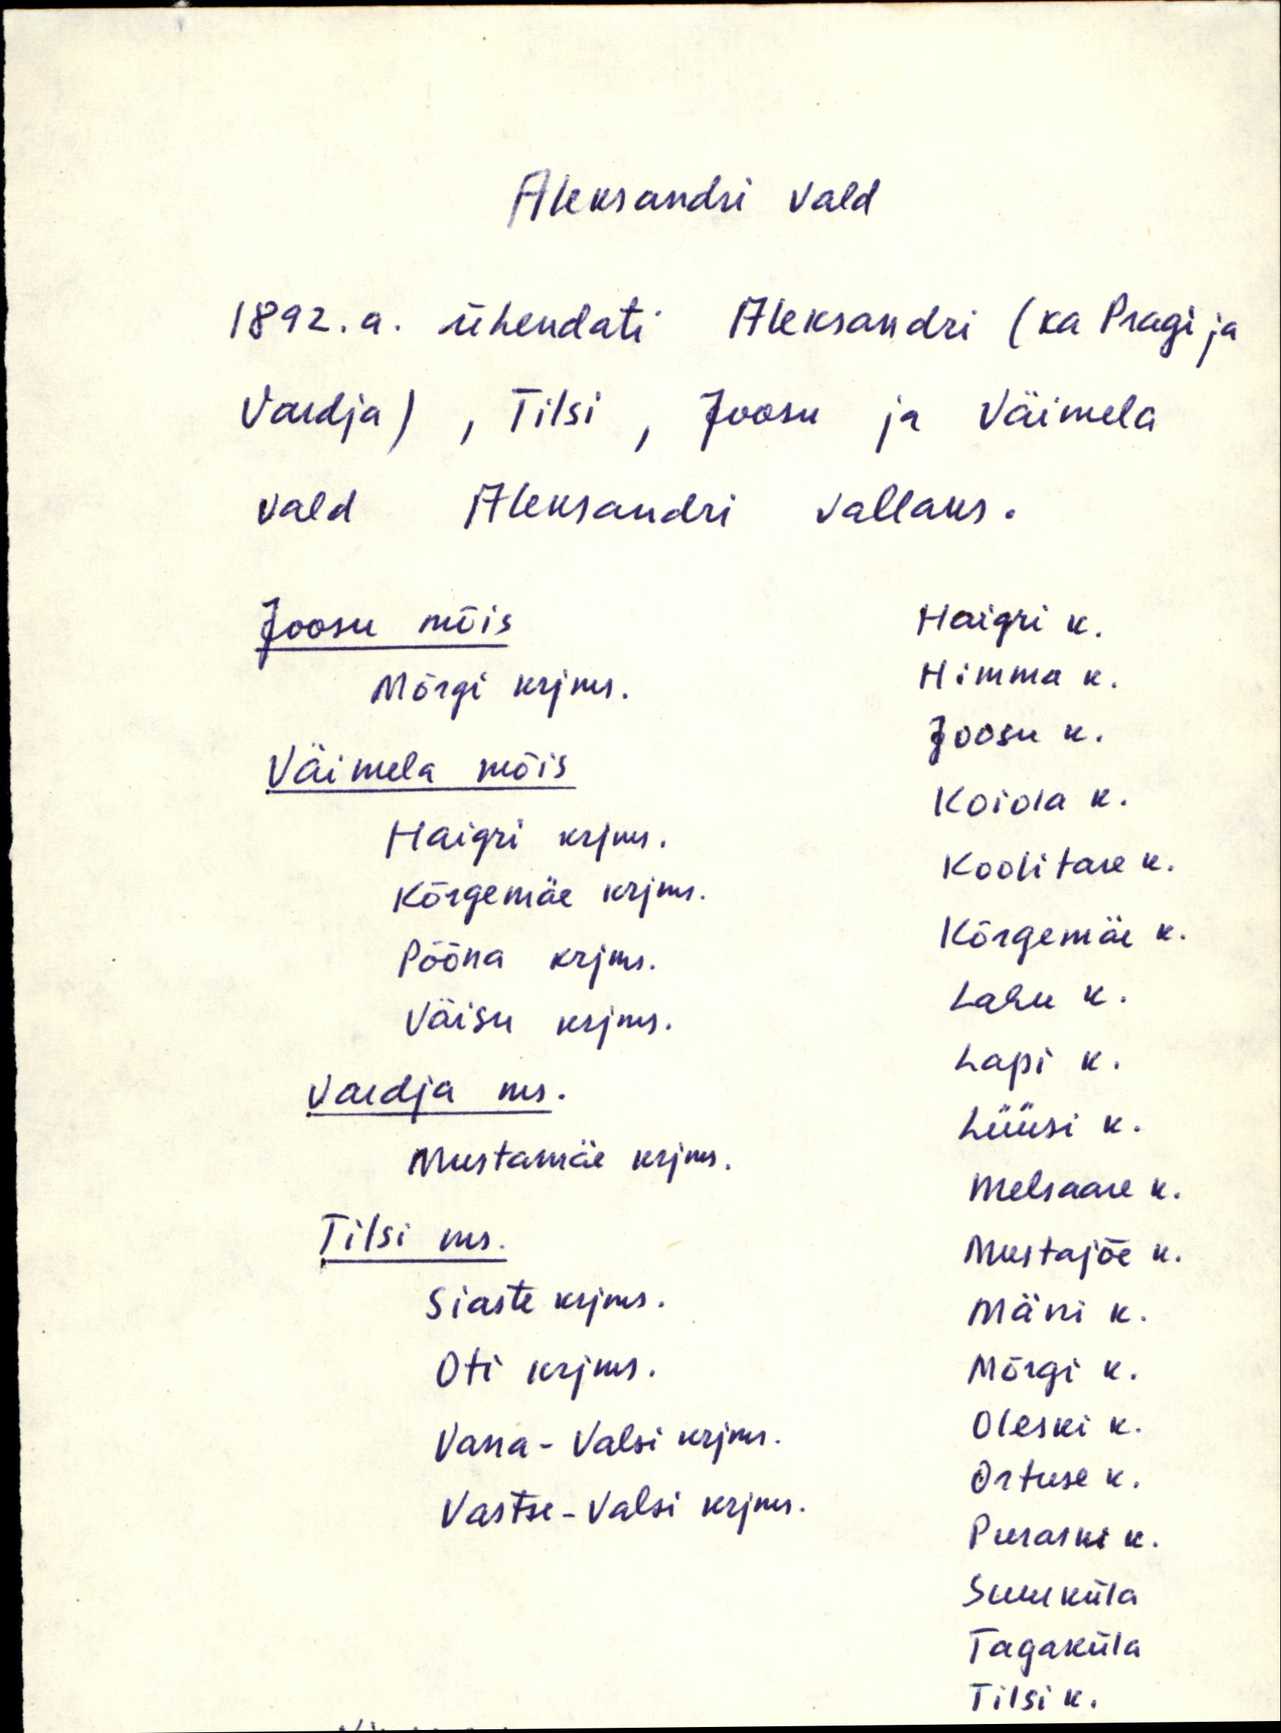 Aleksandri vald
1892. a. ühendati Aleksandri (ka Pragi ja
Vardja) , Tilsi , Joosu ja Väimela
vald Aleksandri vallaks.
Joosu mõis
Mõrgi krjms.
Väimela mõis
Haigri krjms.
Kõrgemäe krjms.
Põõna krjms.
Väisu krjms.
Vardja ms.
Mustamäe krjms.
Tilsi ms.
Siaste krjms.
Oti krjms.
Vana-Valsi krjms.
Vastse-Valsi krjms.
Haigri k.
Himma k.
Joosu k.
Koiola k.
Koolitare k.
Kõrgemäe k.
Lahu k.
Lapi k.
Lüüsi k.
Melsaare k.
Mustajõe k.
Männi k.
Mõrgi k.
Oleski k.
Ortuse k.
Puraski k.
Suurküla
Tagaküla
Tilsi k.